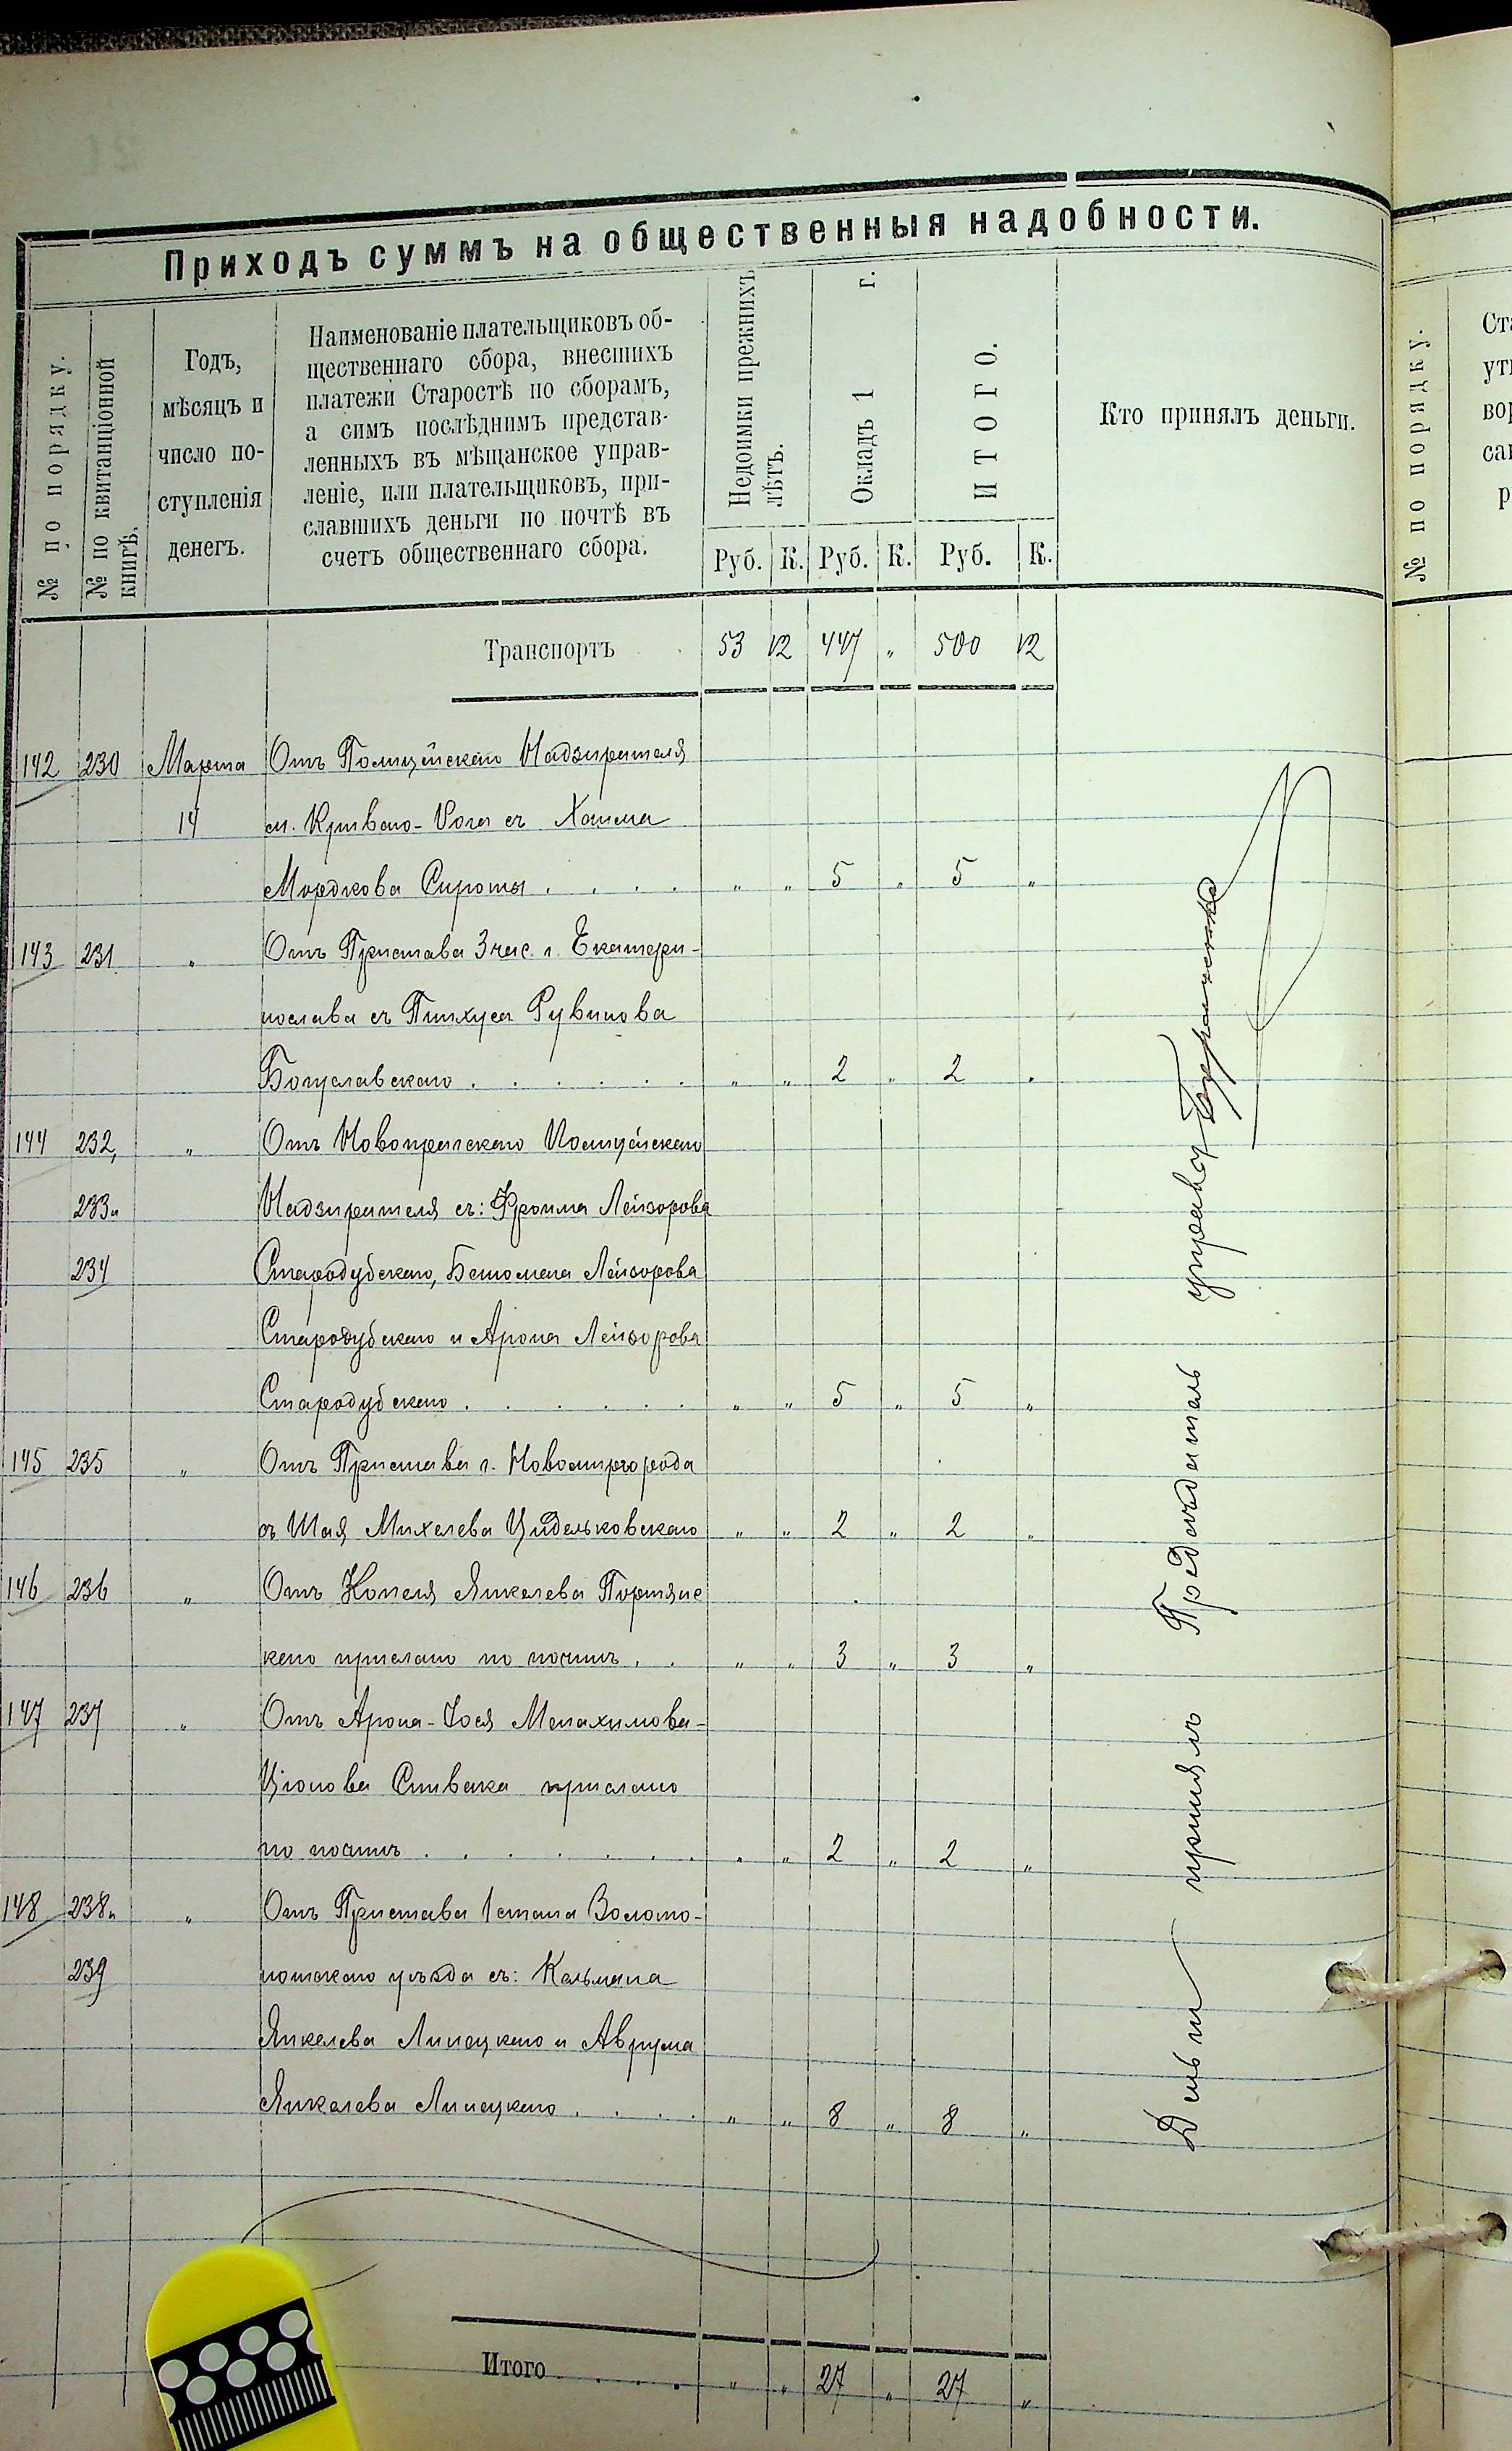 Приходъ суммъ на общественныя надобности.
№ по порядку.
№ по квитанціонной книгѣ.
Годъ,
мѣсяцъ и
число по-
ступленія
денегъ.
Наименованіе плательщиковъ об-
щественнаго сбора, внесшихъ
платежи Старостѣ по сборамъ,
а симъ послѣднимъ представ-
ленныхъ въ мѣщанское управ-
леніе, или плательщиковъ, при-
славшихъ деньги по почтѣ въ
счетъ общественнаго сбора.
Недоимки прежнихъ лѣтъ.
Окладъ 1 г.
ИТОГО.
Кто принялъ деньги.
Руб. К. Руб. К. Руб. К.
Транспортъ 53 12 447 „ 500 12
142 230 Марта Отъ Полицейскаго Надзирателя
14 м. Кривого-Рога съ Хаима
Мордкова Сироты . . . . „ „ 5 „ 5 „
143 231 „ Отъ Пристава 3 час. г. Екатери-
нослава съ Пинхуса Рувинова
Богуславскаго . . . . . . „ „ 2 „ 2 „
144 232, „ Отъ Новопражскаго Полицейскаго
233 и Надзирателя съ: Фроима Лейзорова
234 Стародубскаго, Лейзорова
Стародубскаго и Арона Лейзорова
Стародубскаго . . . . . . „ „ 5 „ 5 „
145 235 „ Отъ Пристава г. Новомиргорода
съ Шая Михелева Цидельковскаго „ „ 2 „ 2 „
146 236 „ Отъ Копеля Янкелева Портянс
каго прислано по почтѣ . . „ „ 3 „ 3 „
147 237 „ Отъ Арона-Іося Менахимова-
Ціонова Спивака прислано
по почтѣ . . . . . . . „ „ 2 „ 2 „
148 238 и „ Отъ Пристава 1 стана Золото-
ношскаго уѣзда съ: Кальмана
239
Янкелева Липецкаго и Аврума
Янкелева Липецкаго . . . . „ „ 8 „ 8 „
Деньги принялъ Предсѣдатель управы
Итого . . . . „ „ 27 „ 27 „
№ по порядку.